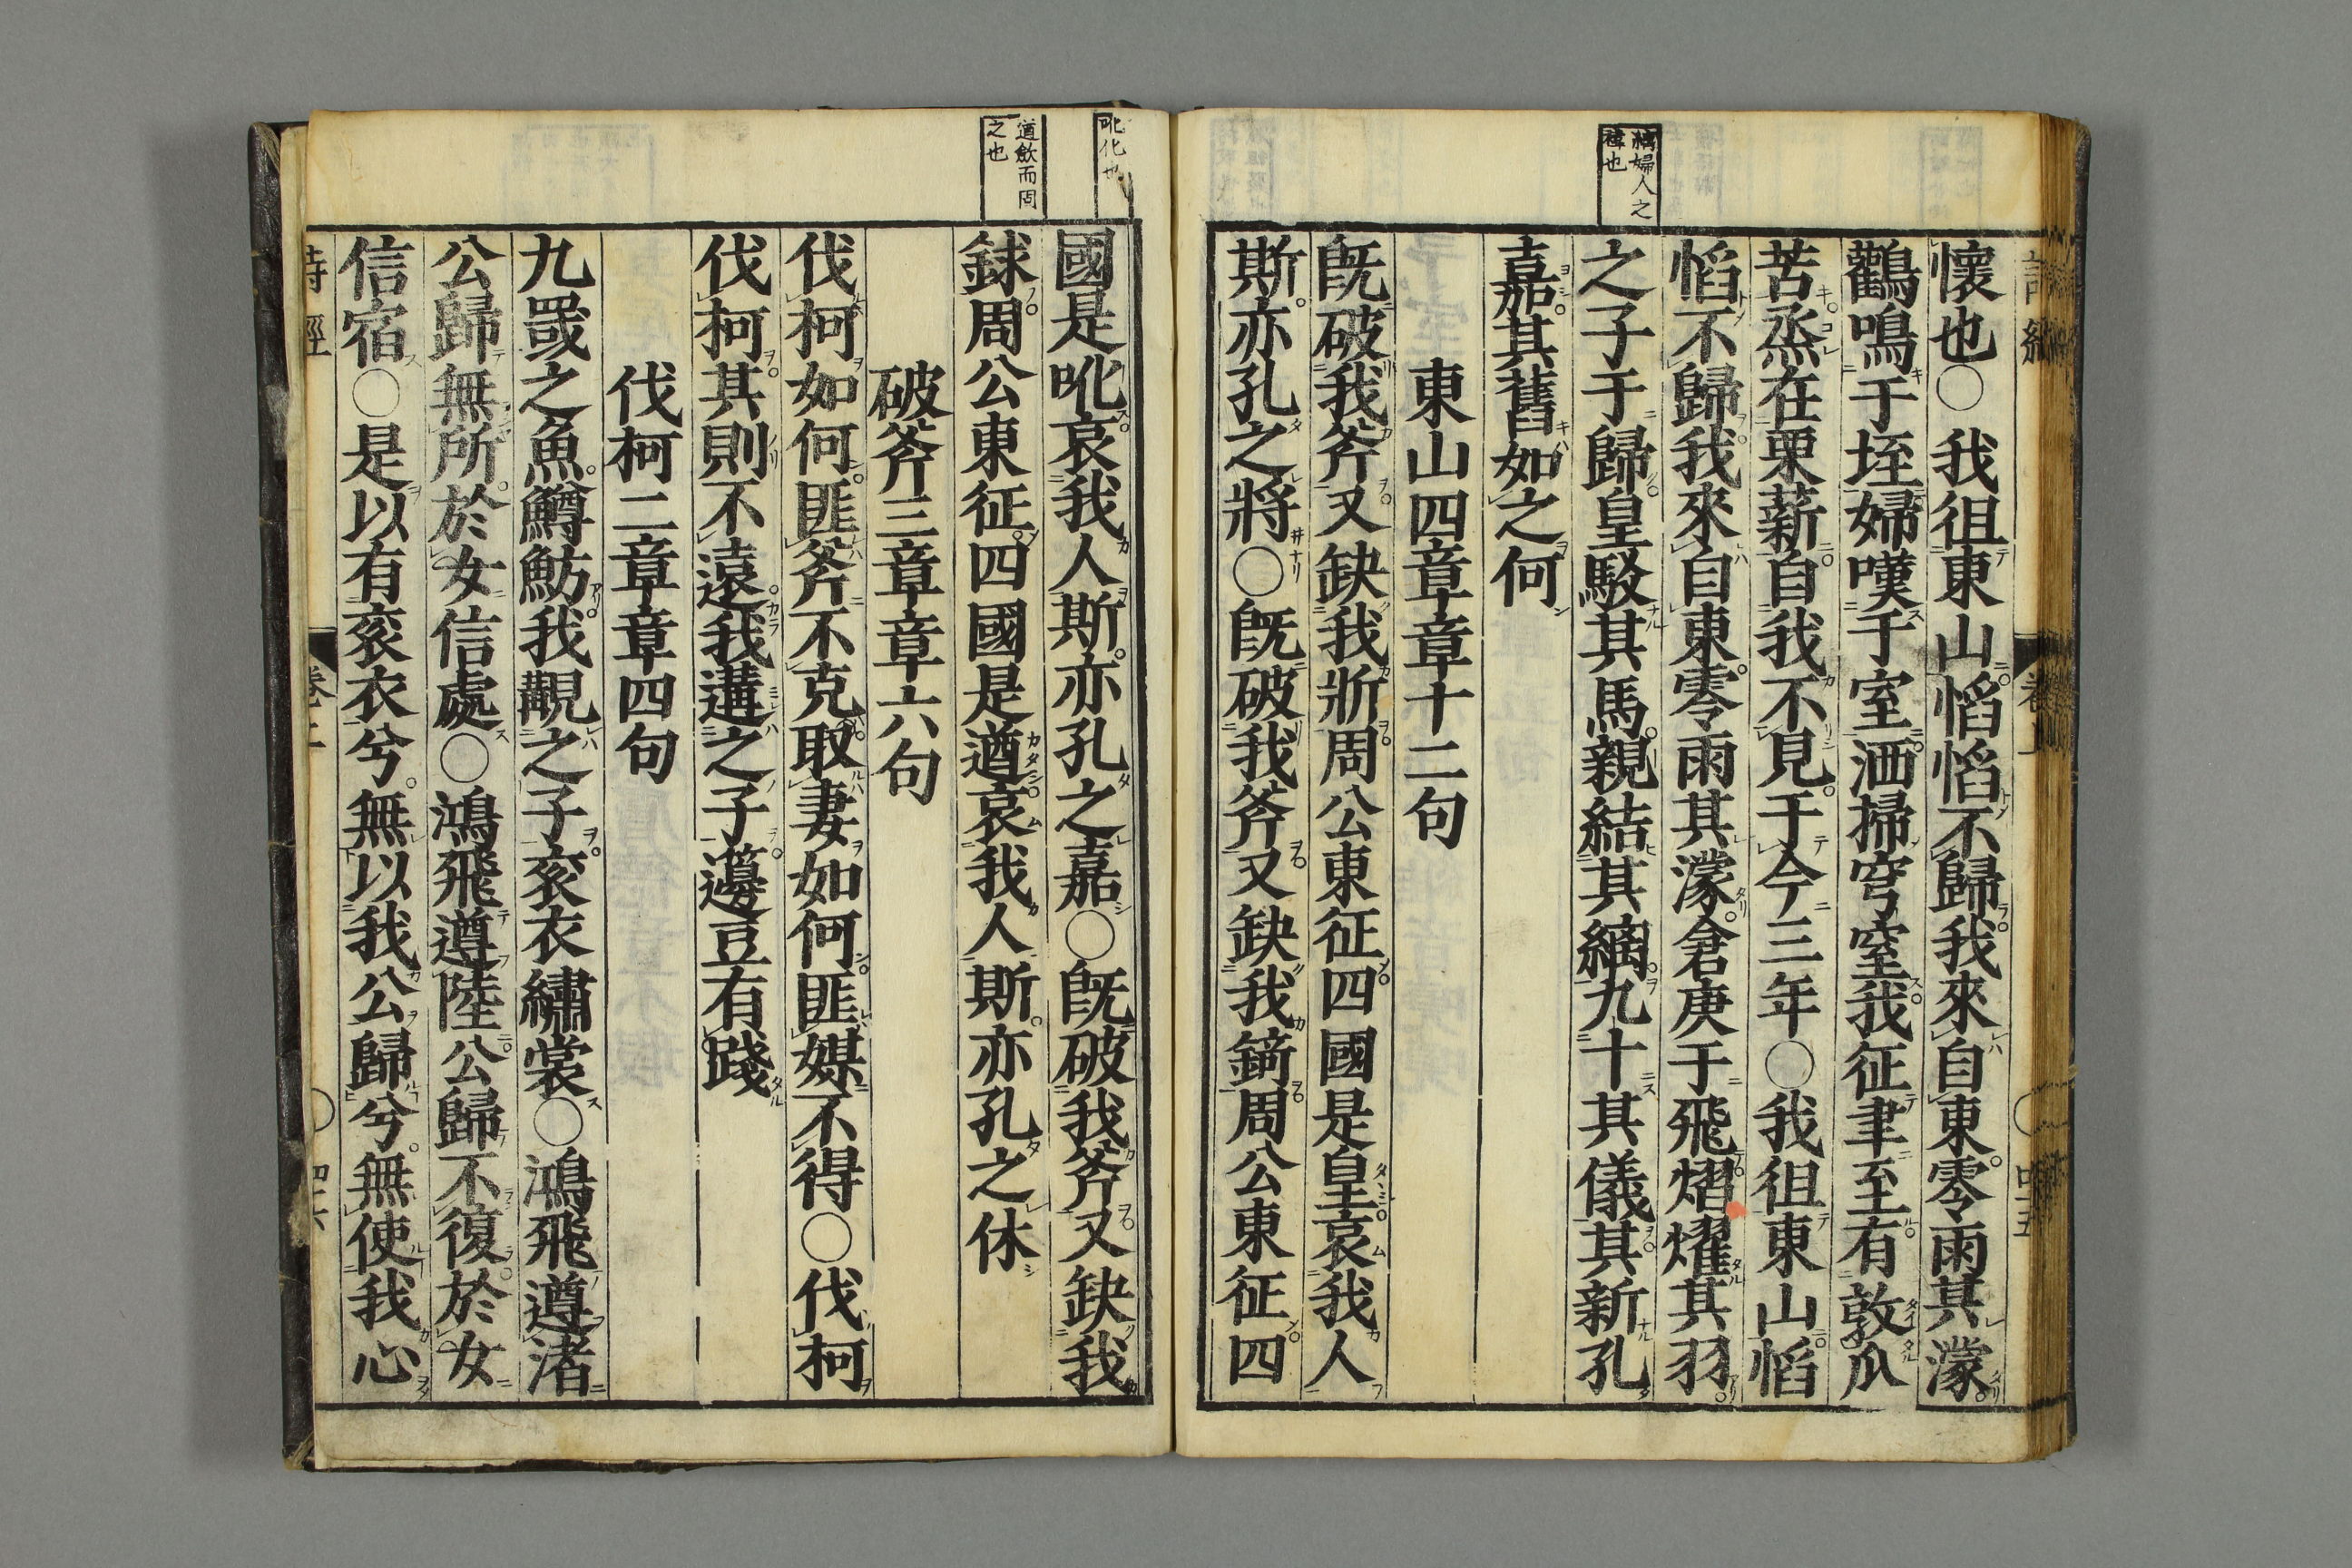 縭婦人之
褘也
懷也○我徂東山慆慆不歸我來自東零雨其濛
鸛鳴于垤婦嘆于室洒掃穹窒我征聿至有敦瓜
苦烝在栗薪自我不見于今三年○我徂東山慆
慆不歸我來自東零雨其濛倉庚于飛熠燿其羽
之子于歸皇駁其馬親結其縭九十其儀其新孔
嘉其舊如之何
東山四章章十二句
既破我斧又缺我斨周公東征四國是皇哀我人
斯亦孔之將○既破我斧又缺我錡周公東征四
吪化也
遒斂而固
之也
國是吪哀我人斯亦孔之嘉○既破我斧又缺我
銶周公東征四國是遒哀我人斯亦孔之休
破斧三章章六句
伐柯如何匪斧不克取妻如何匪媒不得○伐柯
伐柯其則不遠我遘之子籩豆有踐
伐柯二章章四句
九罭之魚鱒魴我覯之子袞衣繡裳○鴻飛遵渚
公歸無所於女信處○鴻飛遵陸公歸不復於女
信宿○是以有袞衣兮無以我公歸兮無使我心
詩經